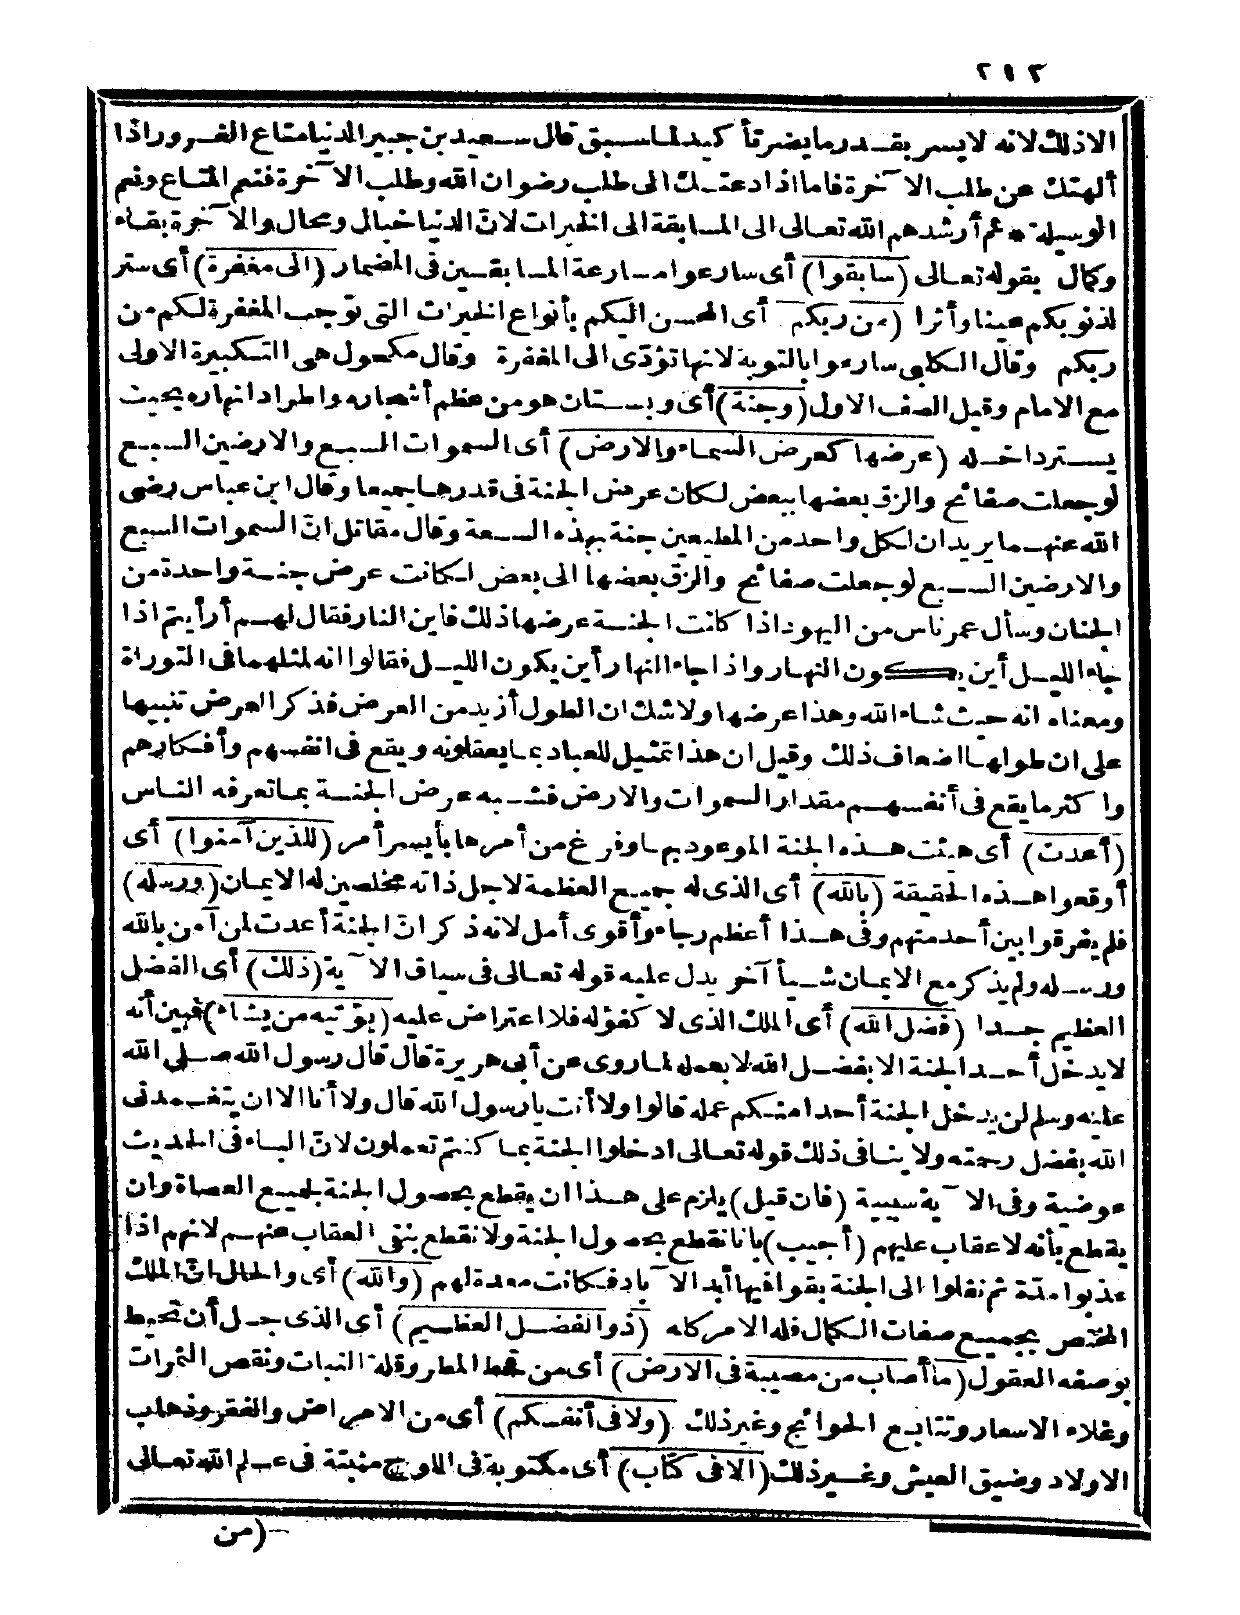 ٢١٣
الا ذلك لانه لا يسر بقدر ما يضر تأكيد لما سبق قال سعيد بن جبير الدنيا متاع الغرور اذا
ألهتك عن طلب الآخرة فاما اذا دعتك الى طلب رضوان الله وطلب الآخرة فنعم المتاع ونعم
الوسيلة * ثم أرشدهم الله تعالى الى المسابقة الى الخيرات لانّ الدنيا خيال ومحال والآخرة بقاء
وكمال بقوله تعالى (سابقوا) أى سارعوا مسارعة المسابقين فى المضمار (الى مغفرة) أى ستر
لذنوبكم عينا وأثرا (من ربكم) أى المحسن اليكم بأنواع الخيرات التى توجب المغفرة لكم من
ربكم وقال الكلبى سارعوا بالتوبة لانها تؤدّى الى المغفرة وقال مكحول هى التكبيرة الاولى
مع الامام وقيل الصف الاول (وجنة) أى وبستان هو من عظم أشجاره واطراد انهاره بحيث
يستر داخله (عرضها كعرض السماء والارض) أى السموات السبع والارضين السبع
لو جعلت صفائح والزق بعضها ببعض لكان عرض الجنة فى قدرها جميعا وقال ابن عباس رضى
الله عنهما يريد ان لكل واحد من المطيعين جنة بهذه السعة وقال مقاتل انّ السموات السبع
والارضين السبع لو جعلت صفائح والزق بعضها الى بعض لكانت عرض جنة واحدة من
الجنان وسأل عمر ناس من اليهود اذا كانت الجنة عرضها ذلك فاين النار فقال لهم أرأيتم اذا
جاء الليل أين يكون النهار واذا جاء النهار أين يكون الليل فقالوا انه لمثلهما فى التوراة
ومعناه انه حيث شاء الله وهذا عرضها ولا شك ان الطول أزيد من العرض فذكر العرض تنبيها
على ان طولها اضعاف ذلك وقيل ان هذا تمثيل للعباد بما يعقلونه ويقع فى انفسهم وأفكارهم
واكثر ما يقع فى أنفسهم مقدار السموات والارض فشبه عرض الجنة بما تعرفه الناس
(أعدت) أى هيئت هذه الجنة الموعود بها وفرغ من أمرها بأيسر أمر (للذين آمنوا) أى
أوقعوا هذه الحقيقة (بالله) أى الذى له جميع العظمة لاجل ذاته مخلصين له الايمان (ورسله)
فلم يفرقوا بين أحد منهم وفى هذا أعظم رجاء وأقوى أمل لانه ذكر انّ الجنة أعدت لمن آمن بالله
ورسله ولم يذكر مع الايمان شيأ آخر يدل عليه قوله تعالى فى سياق الآية (ذلك) أى الفضل
العظيم جدا (فضل الله) أى الملك الذى لا كفؤله فلا اعتراض عليه (يؤتيه من يشاء) فبين أنه
لا يدخل أحد الجنة الا بفضل الله لا بعمله لما روى عن أبى هريرة قال قال رسول الله صلى الله
عليه وسلم لن يدخل الجنة أحدا منكم عمله قالوا ولا أنت يا رسول الله قال ولا أنا الا ان يتغمدنى
الله بفضل رحمته ولا ينافى ذلك قوله تعالى ادخلوا الجنة بما كنتم تعملون لانّ الباء فى الحديث
عوضية وفى الآية سببية (فان قيل) يلزم على هذا ان يقطع بحصول الجنة لجميع العصاة وان
يقطع بأنه لا عقاب عليهم (أجيب) بانا نقطع بحصول الجنة ولا نقطع بنفى العقاب عنهم لانهم اذا
عذبوا مدّة ثم نقلوا الى الجنة بقوا فيها أبد الآباد فكانت معدة لهم (والله) أى والحال انّ الملك
المختص بجميع صفات الكمال فله الامر كله (ذو الفضل العظيم) أى الذى جل أن تحيط
بوصفه العقول (ما أصاب من مصيبة فى الارض) أى من قحط المطر وقلة النبات ونقص الثمرات
وغلاء الاسعار وتتابع الحوائج وغير ذلك (ولا فى أنفسكم) أى من الامراض والفقر وذهاب
الاولاد وضيق العيش وغير ذلك (الا فى كتاب) أى مكتوبة فى اللوح مثبتة فى علم الله تعالى
(من